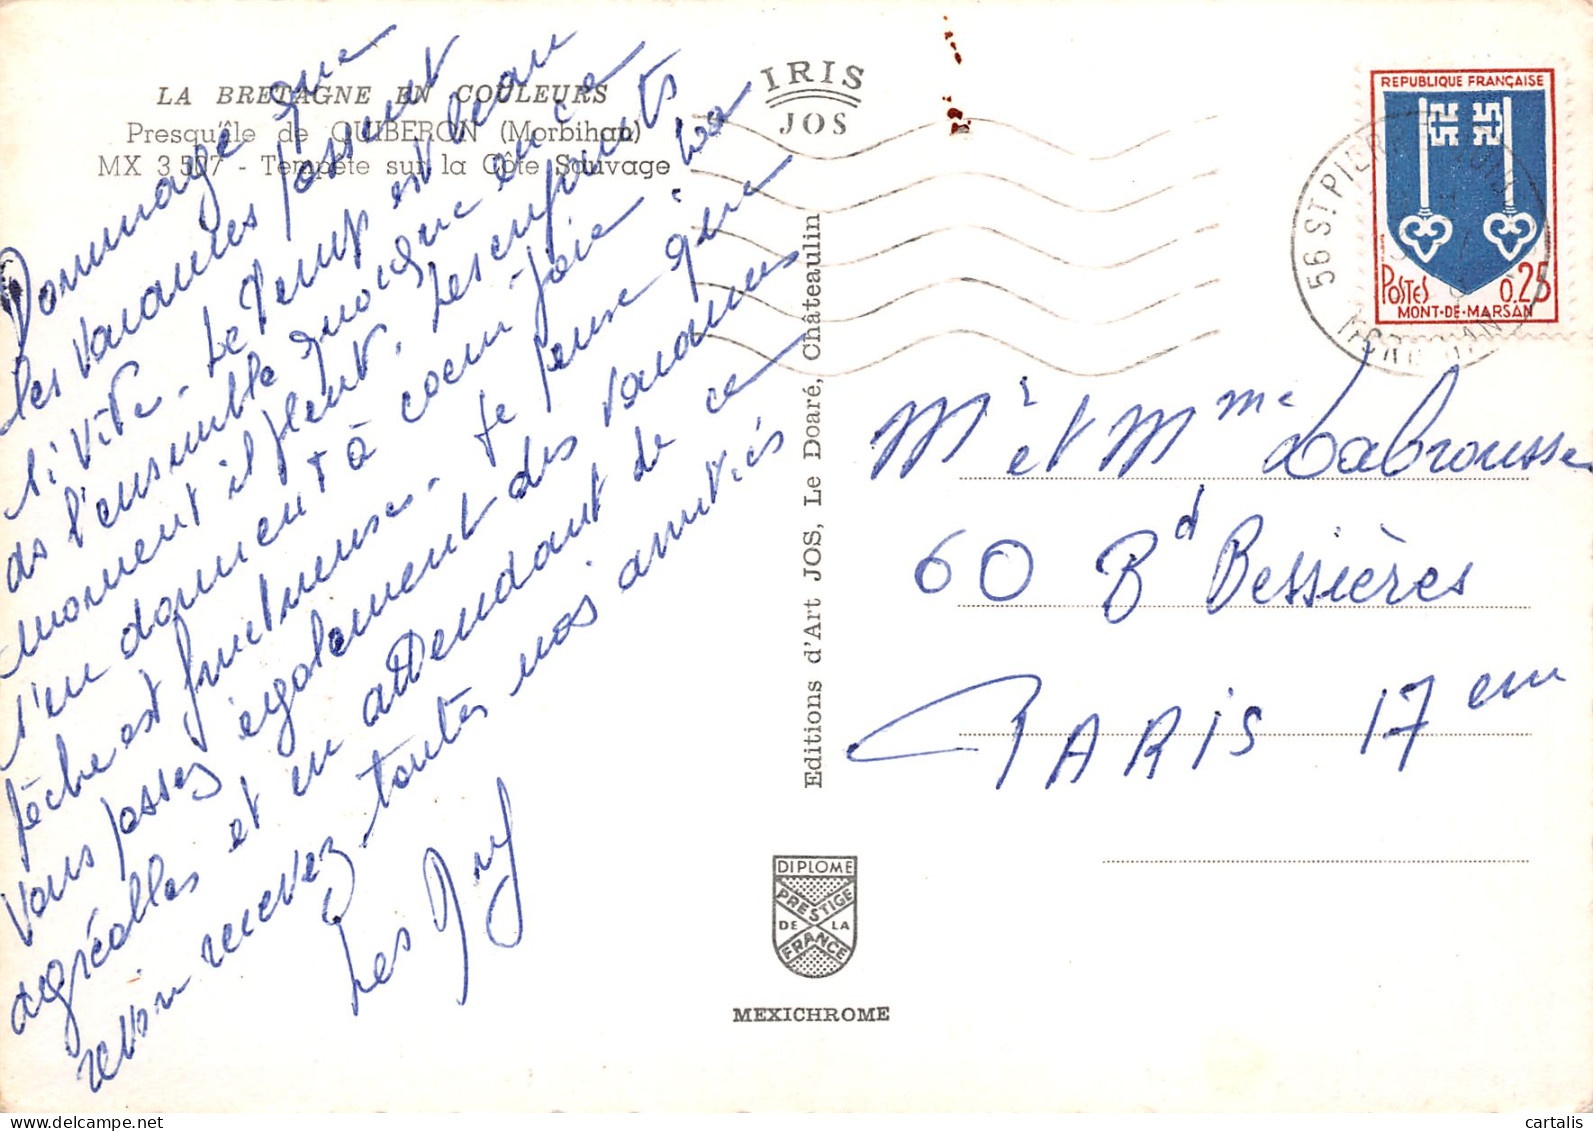 LA BRETAGNE EN COULEURS
Presqu'île de QUIBERON (Morbihan)
MX 3 507 - Tempête sur la Côte Sauvage
IRIS
JOS
Dommage que
les vacances passent
si vite. Le temps est beau
ds l'ensemble quoique en ce
moment il pleut. Les enfants
s'en donnent à cœur-joie. La
pêche est fructueuse. Je pense que
vous passez également des vacances
agréables et en attendant de ce
revoir recevez toutes nos amitiés
Les
Editions d'Art JOS, Le Doaré, Châteaulin
DIPLOME
PRESTIGE
DE LA
FRANCE
MEXICHROME
REPUBLIQUE FRANÇAISE
POSTES 0.25
MONT-DE-MARSAN
56 ST PIERRE QUIB
MORBIHAN
Mr et Mme Labrousse
60 Bd Bessières
PARIS 17 em
cartalis